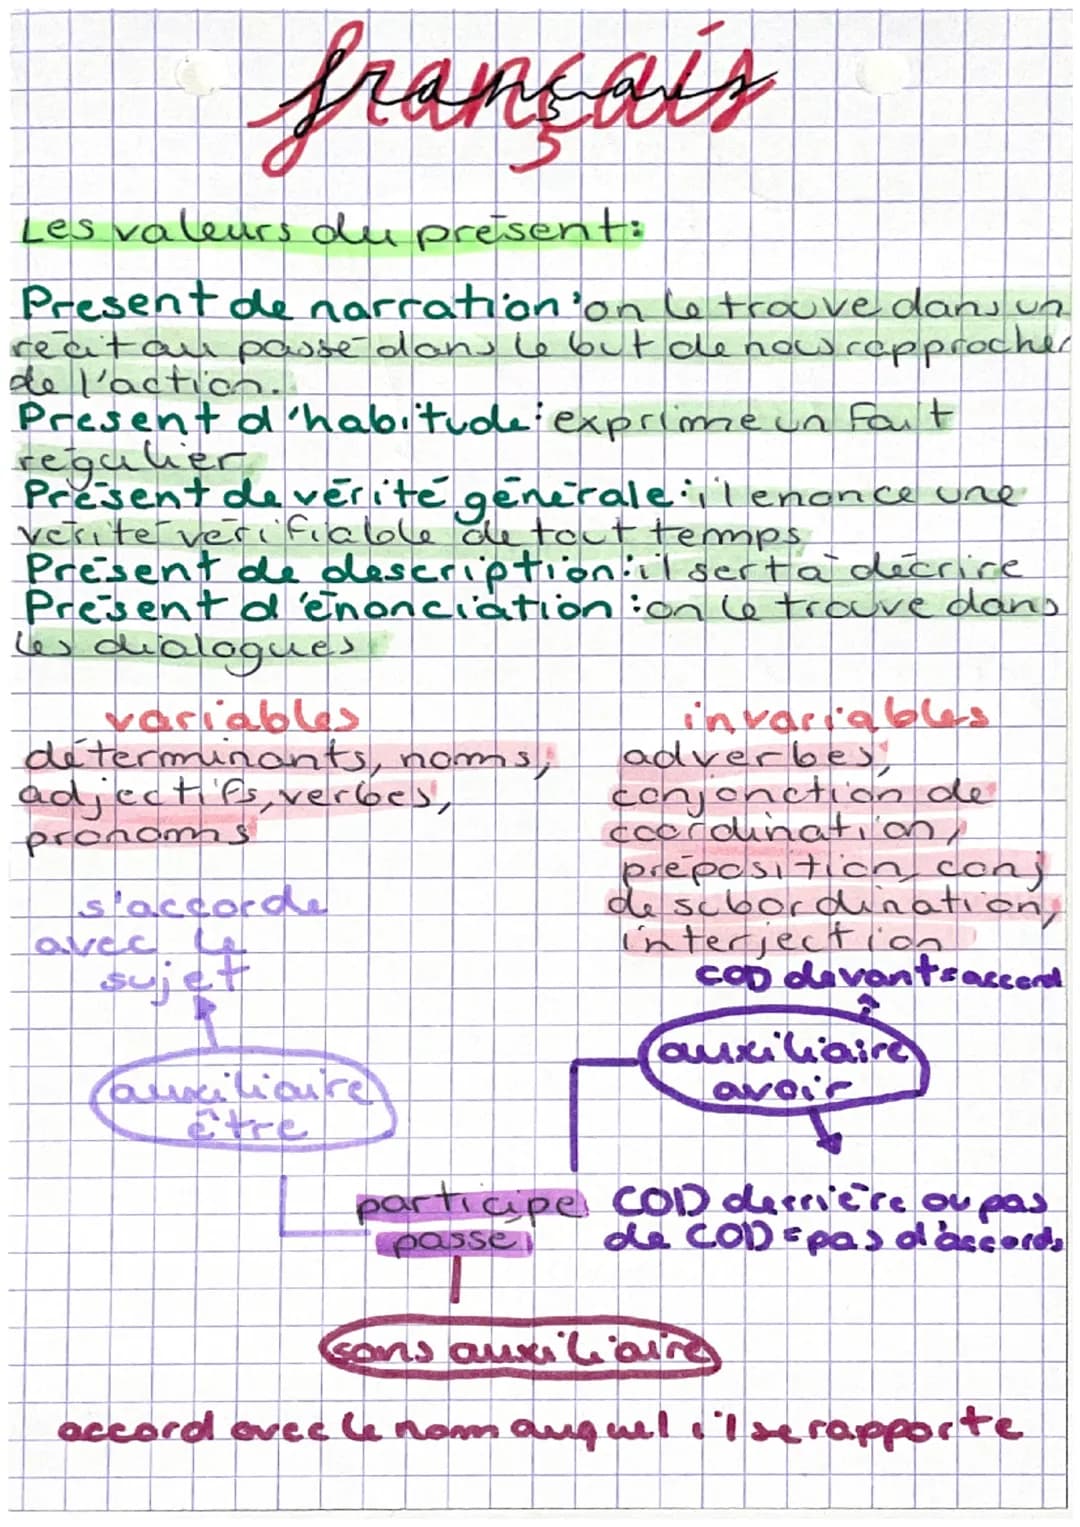 français
Les valeurs du présent:
Present de narration: on le trouve dans un
récit au passé dans le but de nous rapprocher
de l'action.
Present d'habitude: exprime un fait
régulier
Présent de vérité générale: il enonce une
vérité vérifiable de tout temps
Présent de description: il sert à décrire
Présent d'énonciation: on le trouve dans
les dialogues
variables
déterminants, noms,
adjectifs, verbes,
pronoms
invariables
adverbes,
conjonction de
coordination,
préposition, conj
de subordination,
interjection
s'accorde
avec le
sujet
auxiliaire
être
COD devant = accord
auxiliaire
avoir
COD derrière ou pas
de COD = pas d'accords
participe
passé
sans auxiliaire
accord avec le nom auquel il se rapporte